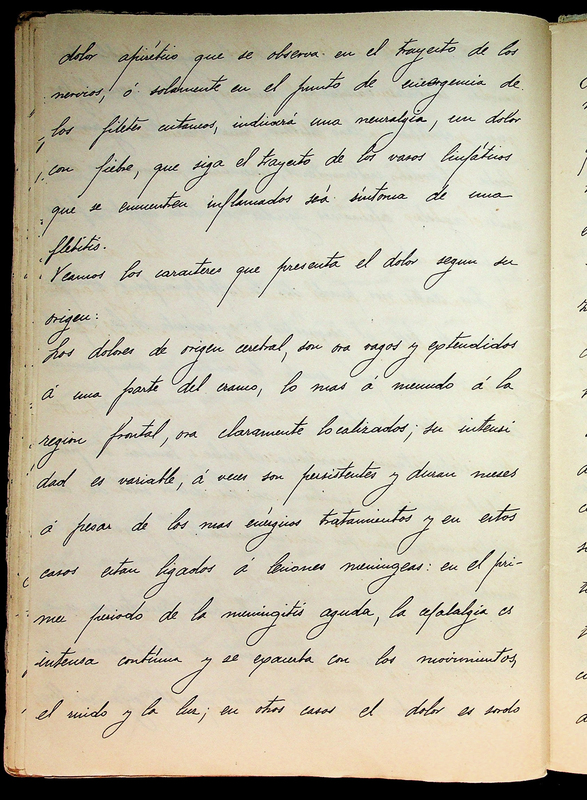 dolor apirético que se observa en el trayecto de los
nervios, ó solamente en el punto de emergencia de
los filetes cutaneos, indicará una neuralgia, un dolor
con fiebre, que siga el trayecto de los vasos linfáticos
que se encuentren inflamados será sintoma de una
flebitis.
Veamos los caracteres que presenta el dolor segun su
origen:
Los dolores de origen cerebral, son ora vagos y extendidos
á una parte del craneo, lo mas á menudo á la
region frontal, ora claramente localizados; su intensi
dad es variable, á veces son persistentes y duran meses
á pesar de los mas enérgicos tratamientos y en estos
casos estan ligados á lesiones meningeas: en el pri-
mer periodo de la meningitis aguda, la cefalalgia es
intensa contínua y se exacerba con los movimientos,
el ruido y la luz; en otros casos el dolor es sordo